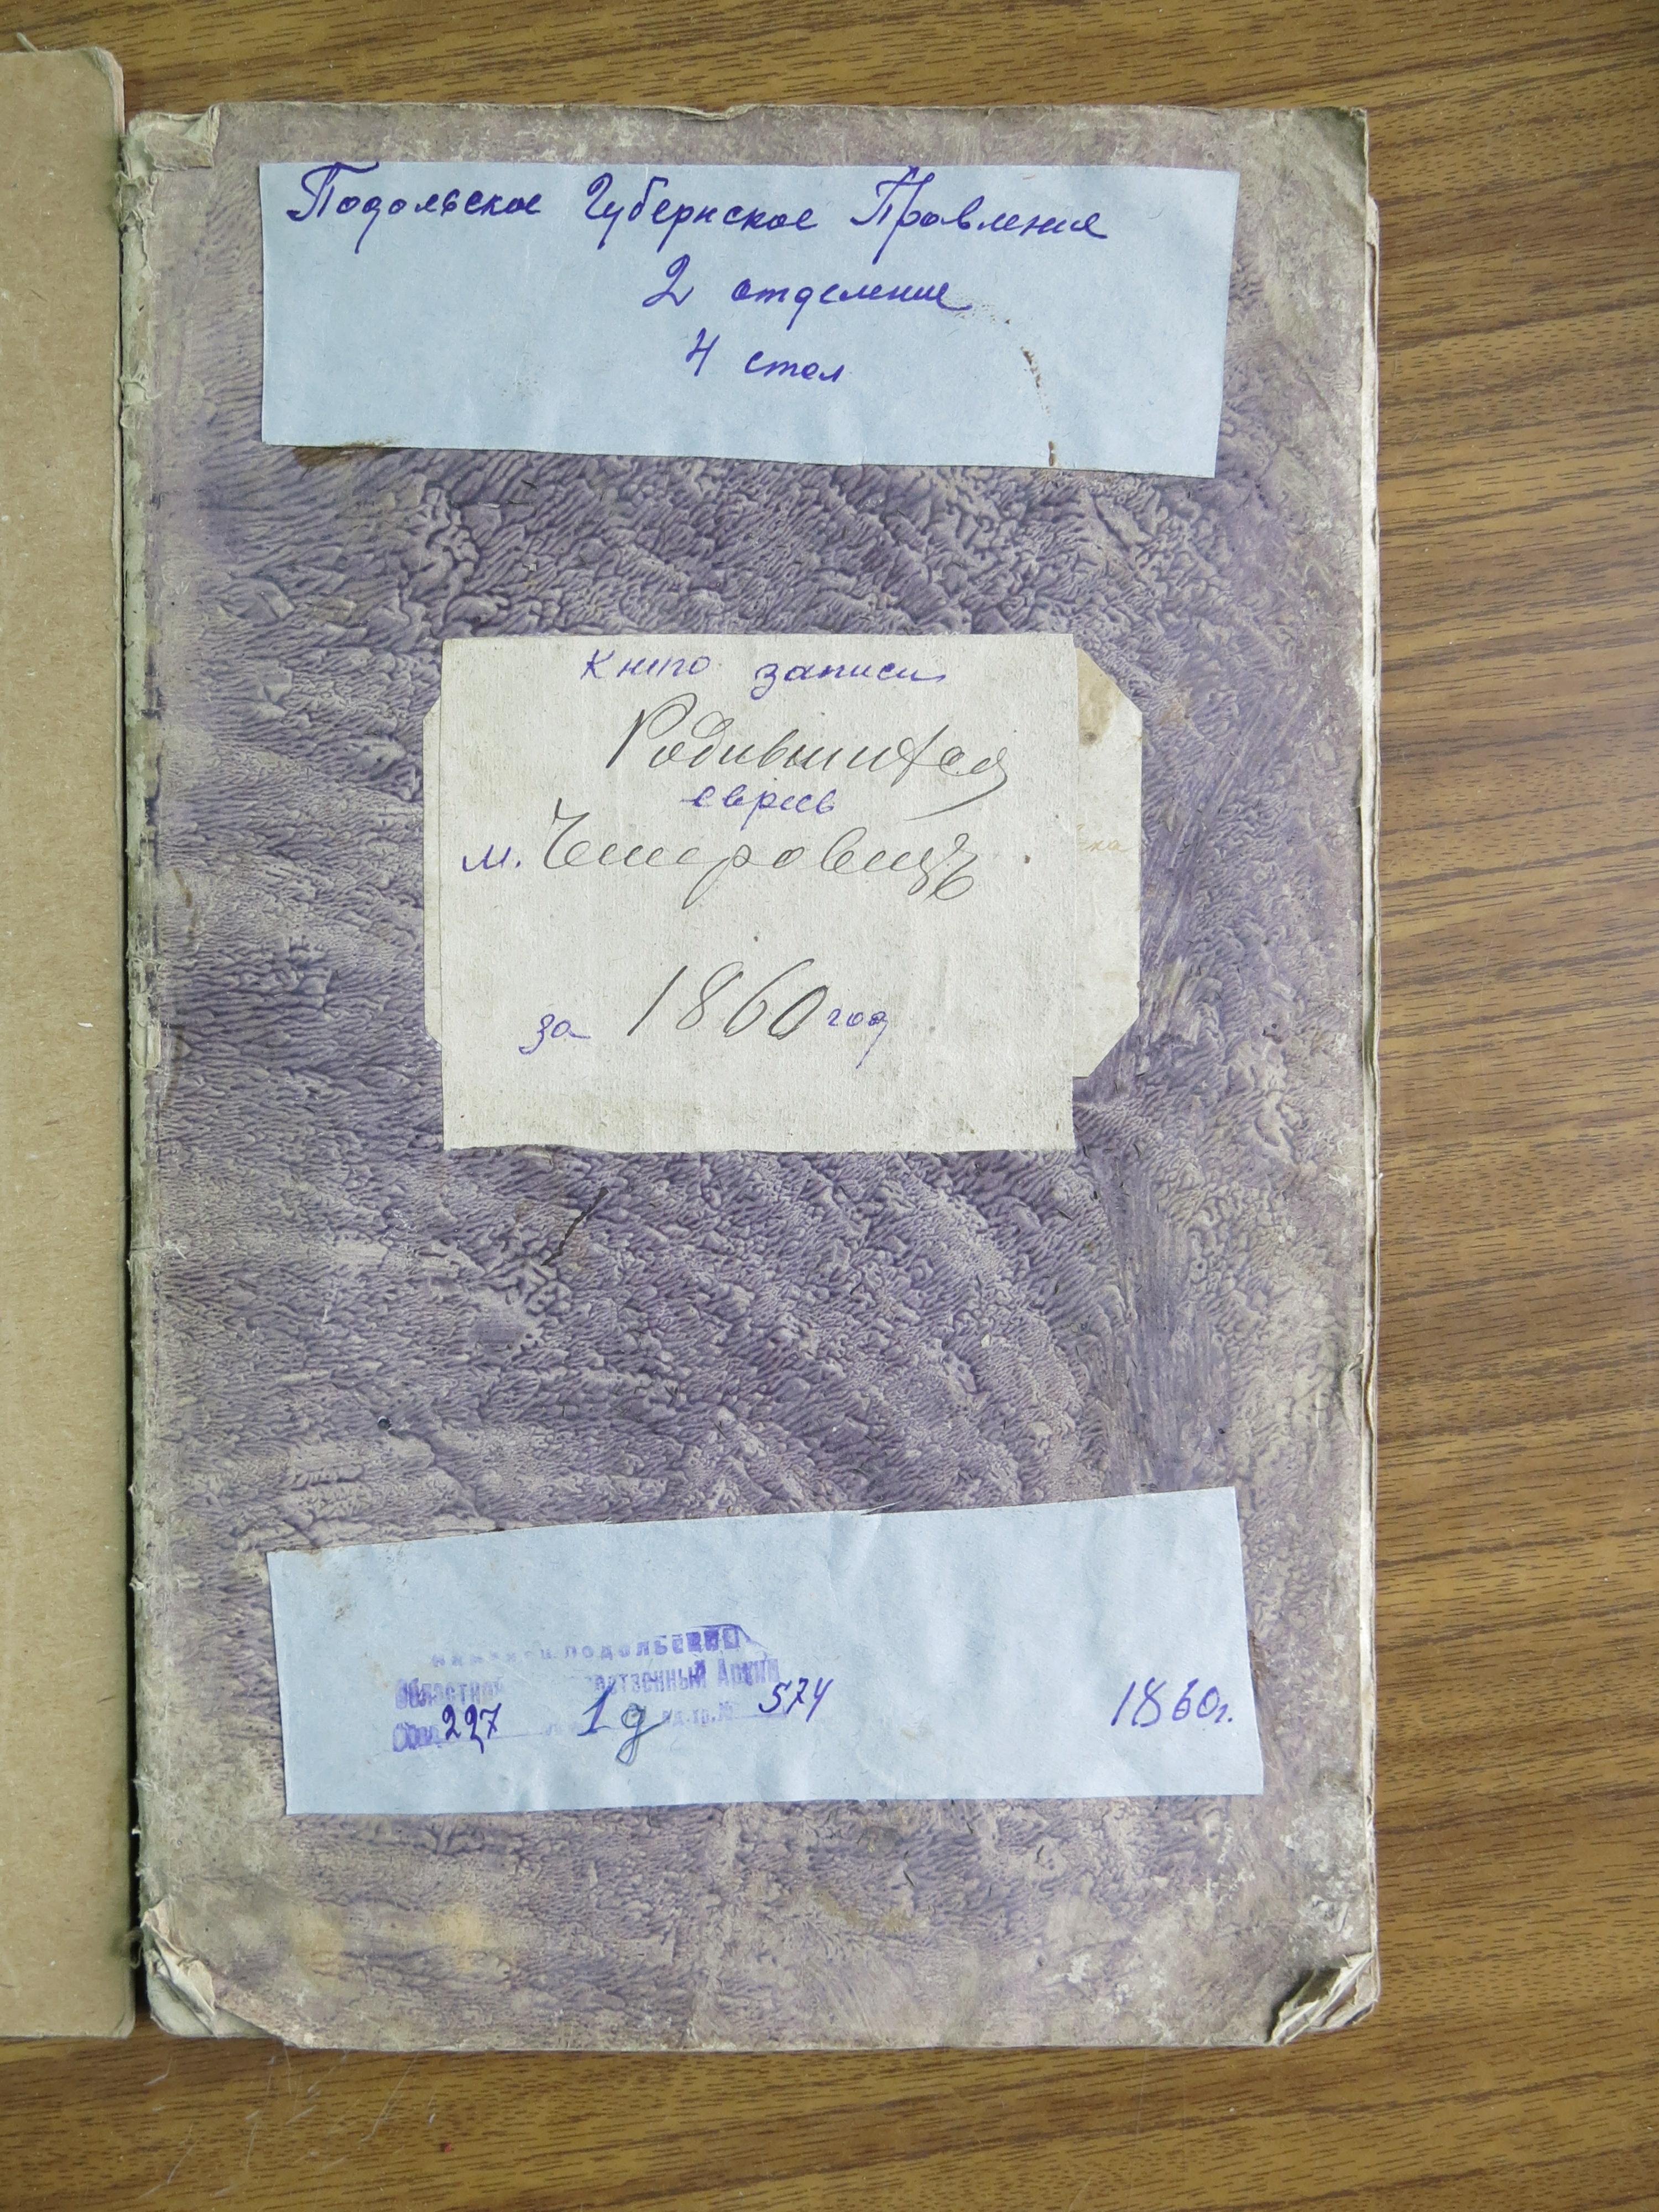 Подольское Губернское Правление
2 отделение
4 стол
Книга записи
Родившихся
евреев
м. Чемеровецъ
за 1860 год
Каменец-Подольский
Областной Государственный Архив
Фонд 227 1д ед.хр.№ 574
1860г.